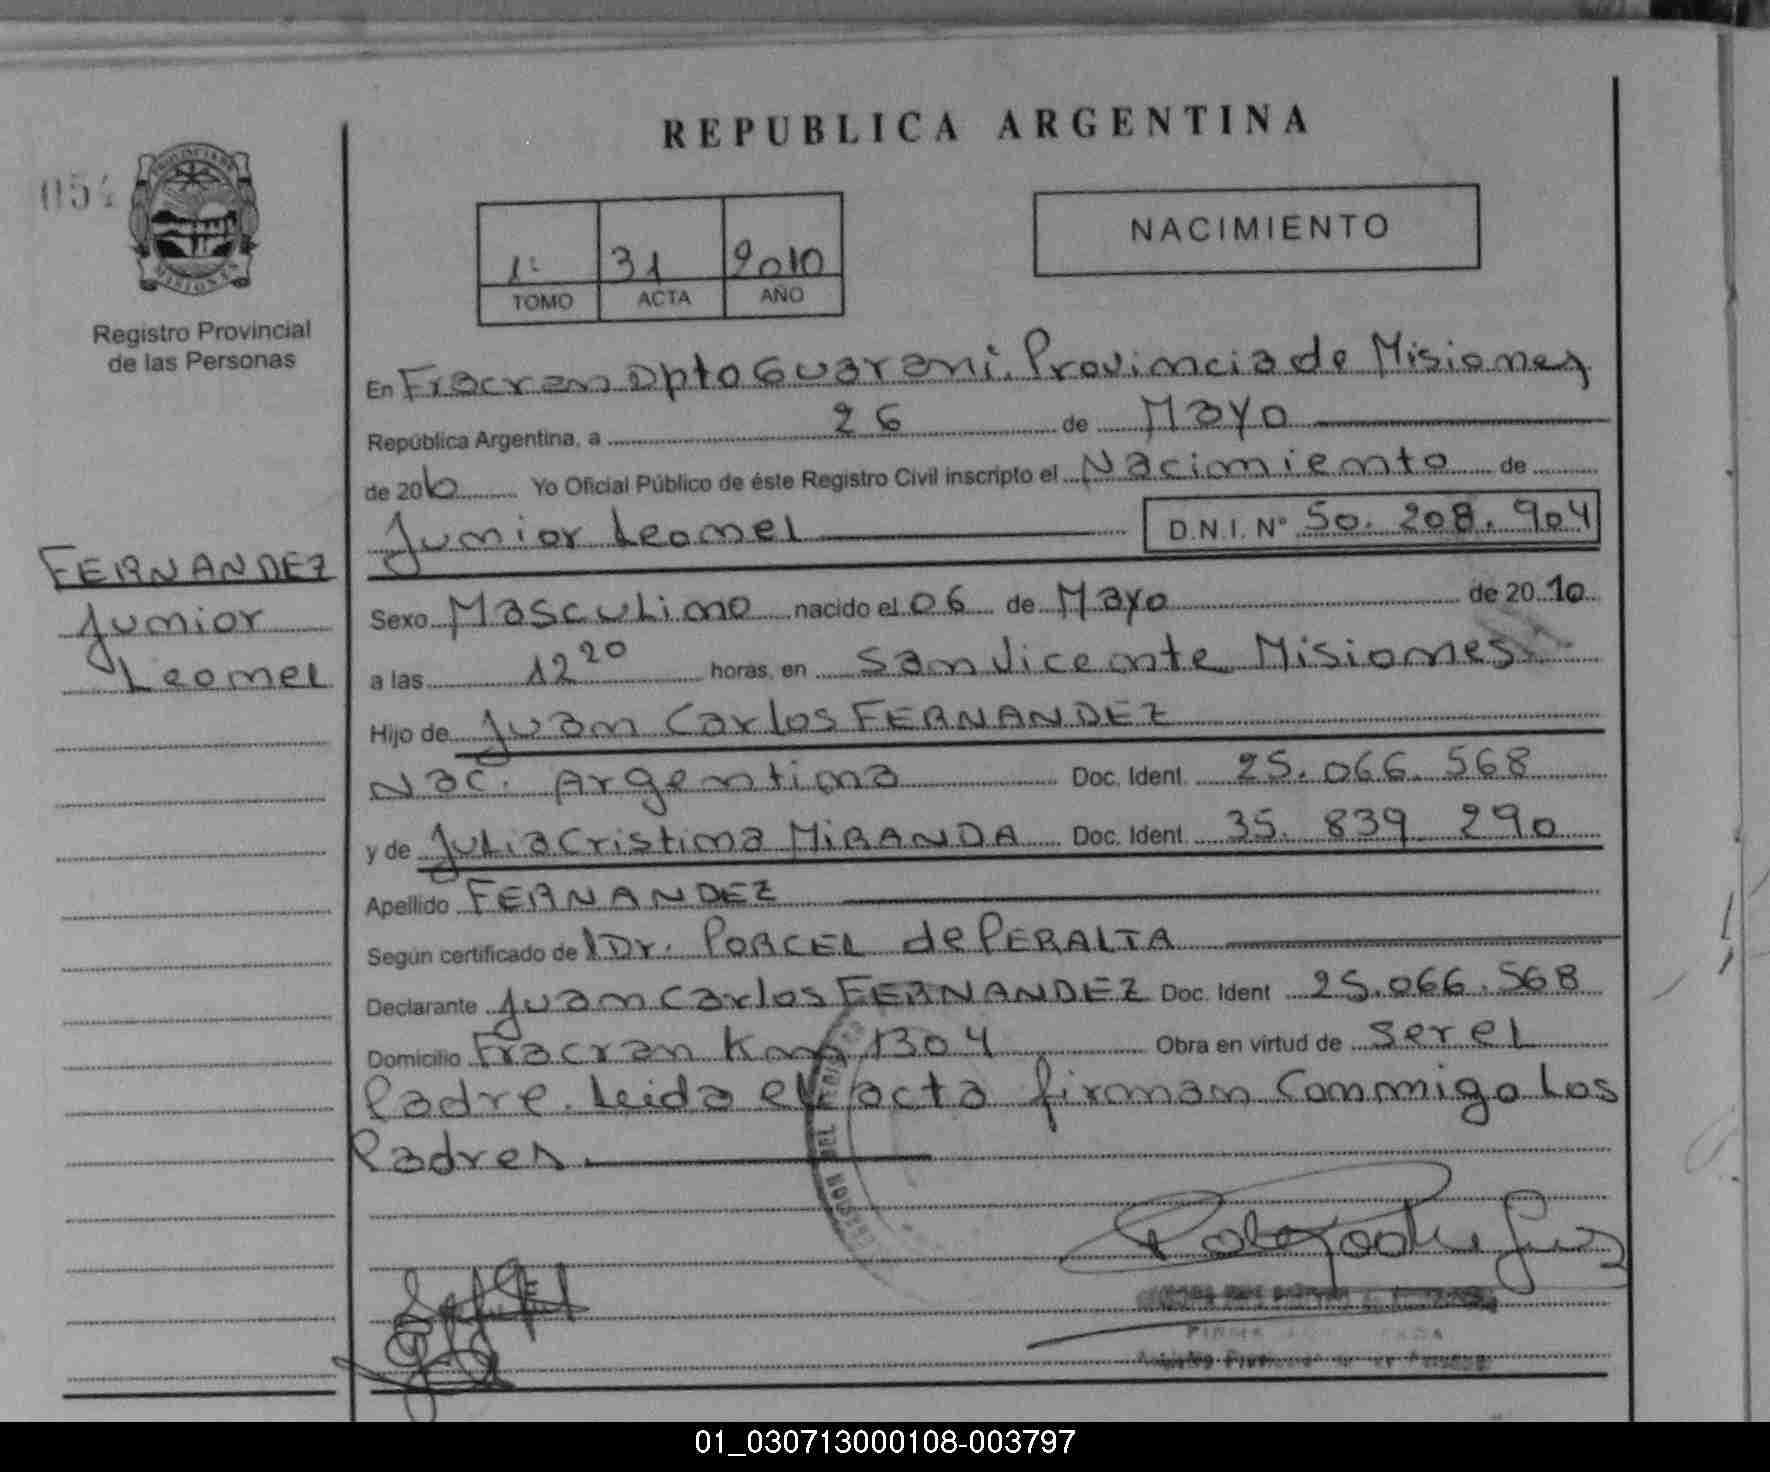 REPUBLICA ARGENTINA
054
PROVINCIA DE
MISIONES
Registro Provincial
de las Personas
1º 31 2010
TOMO ACTA AÑO
NACIMIENTO
En Fracran Dpto Guarani. Provincia de Misiones
República Argentina, a 26 de Mayo
de 2010 Yo Oficial Público de éste Registro Civil inscripto el Nacimiento de
Junior Leonel D.N.I. Nº 50.208.904
FERNANDEZ
Junior
Leonel
Sexo Masculino nacido el 06 de Mayo de 2010
a las 12 20 horas, en San Vicente Misiones
Hijo de Juan Carlos FERNANDEZ
Nac. Argentina Doc. Ident. 25.066.568
y de Julia Cristina MIRANDA Doc. Ident. 35.839.290
Apellido FERNANDEZ
Según certificado de l Dr. PORCEL de PERALTA
Declarante Juan Carlos FERNANDEZ Doc. Ident 25.066.568
Domicilio Fracran Km 1304 Obra en virtud de ser el
Padre. Leida el acta firman Conmigo Los
Padres
01_030713000108-003797